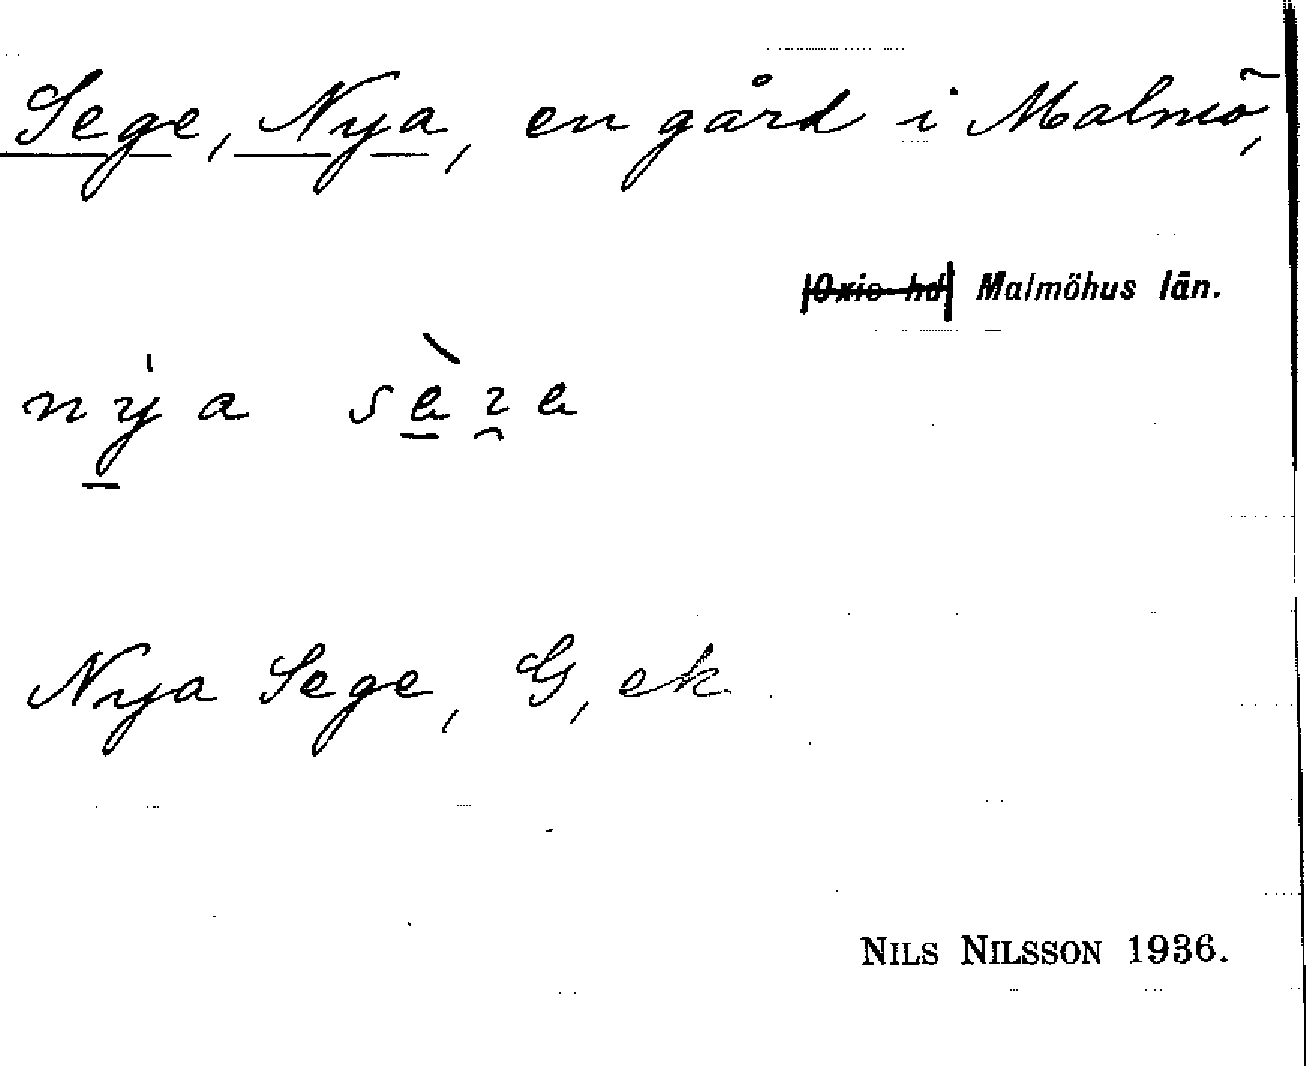 Sege, Nya, en gård i Malmö,
Oxie hd Malmöhus län.
nya
Nya Sege, G, ek.
NILS NILSSON 1936.